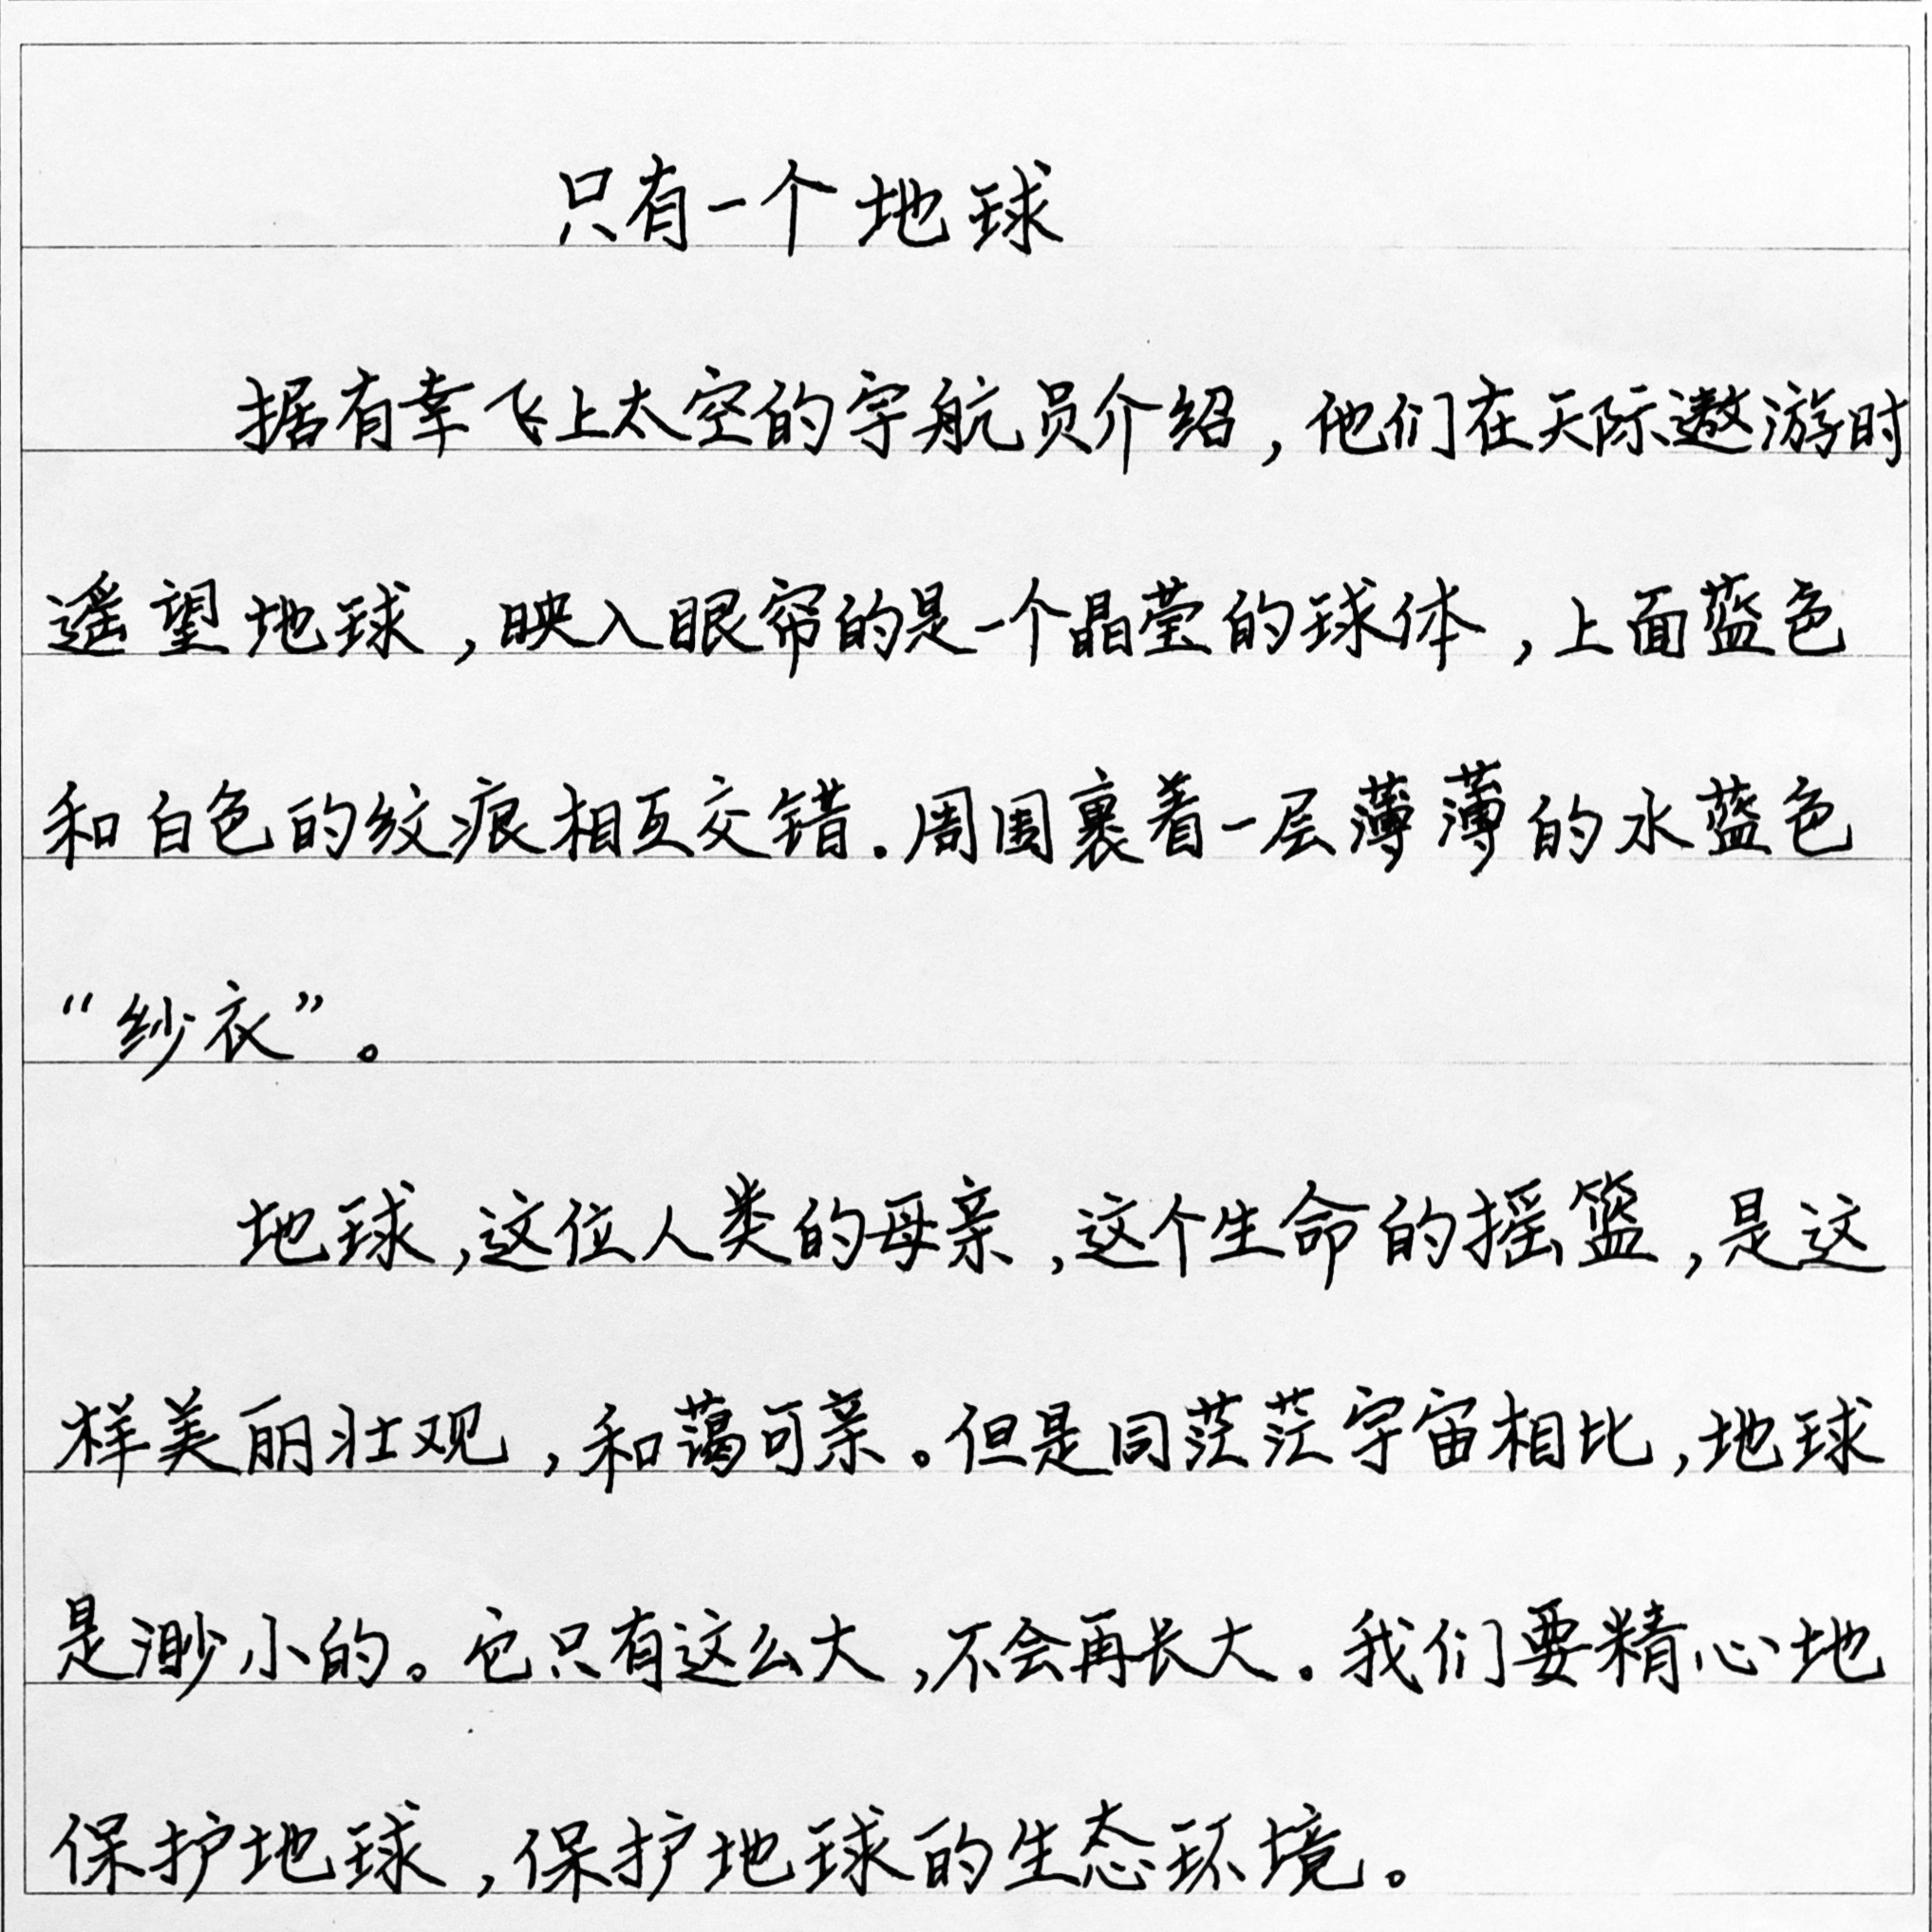 只有一个地球
据有幸飞上太空的宇航员介绍，他们在天际遨游时
遥望地球，映入眼帘的是一个晶莹的球体，上面蓝色
和白色的纹痕相互交错.周围裹着一层薄薄的水蓝色
“纱衣”。
地球，这位人类的母亲，这个生命的摇篮，是这
样美丽壮观，和蔼可亲。但是同茫茫宇宙相比，地球
是渺小的。它只有这么大，不会再长大.我们要精心地
保护地球，保护地球的生态环境。